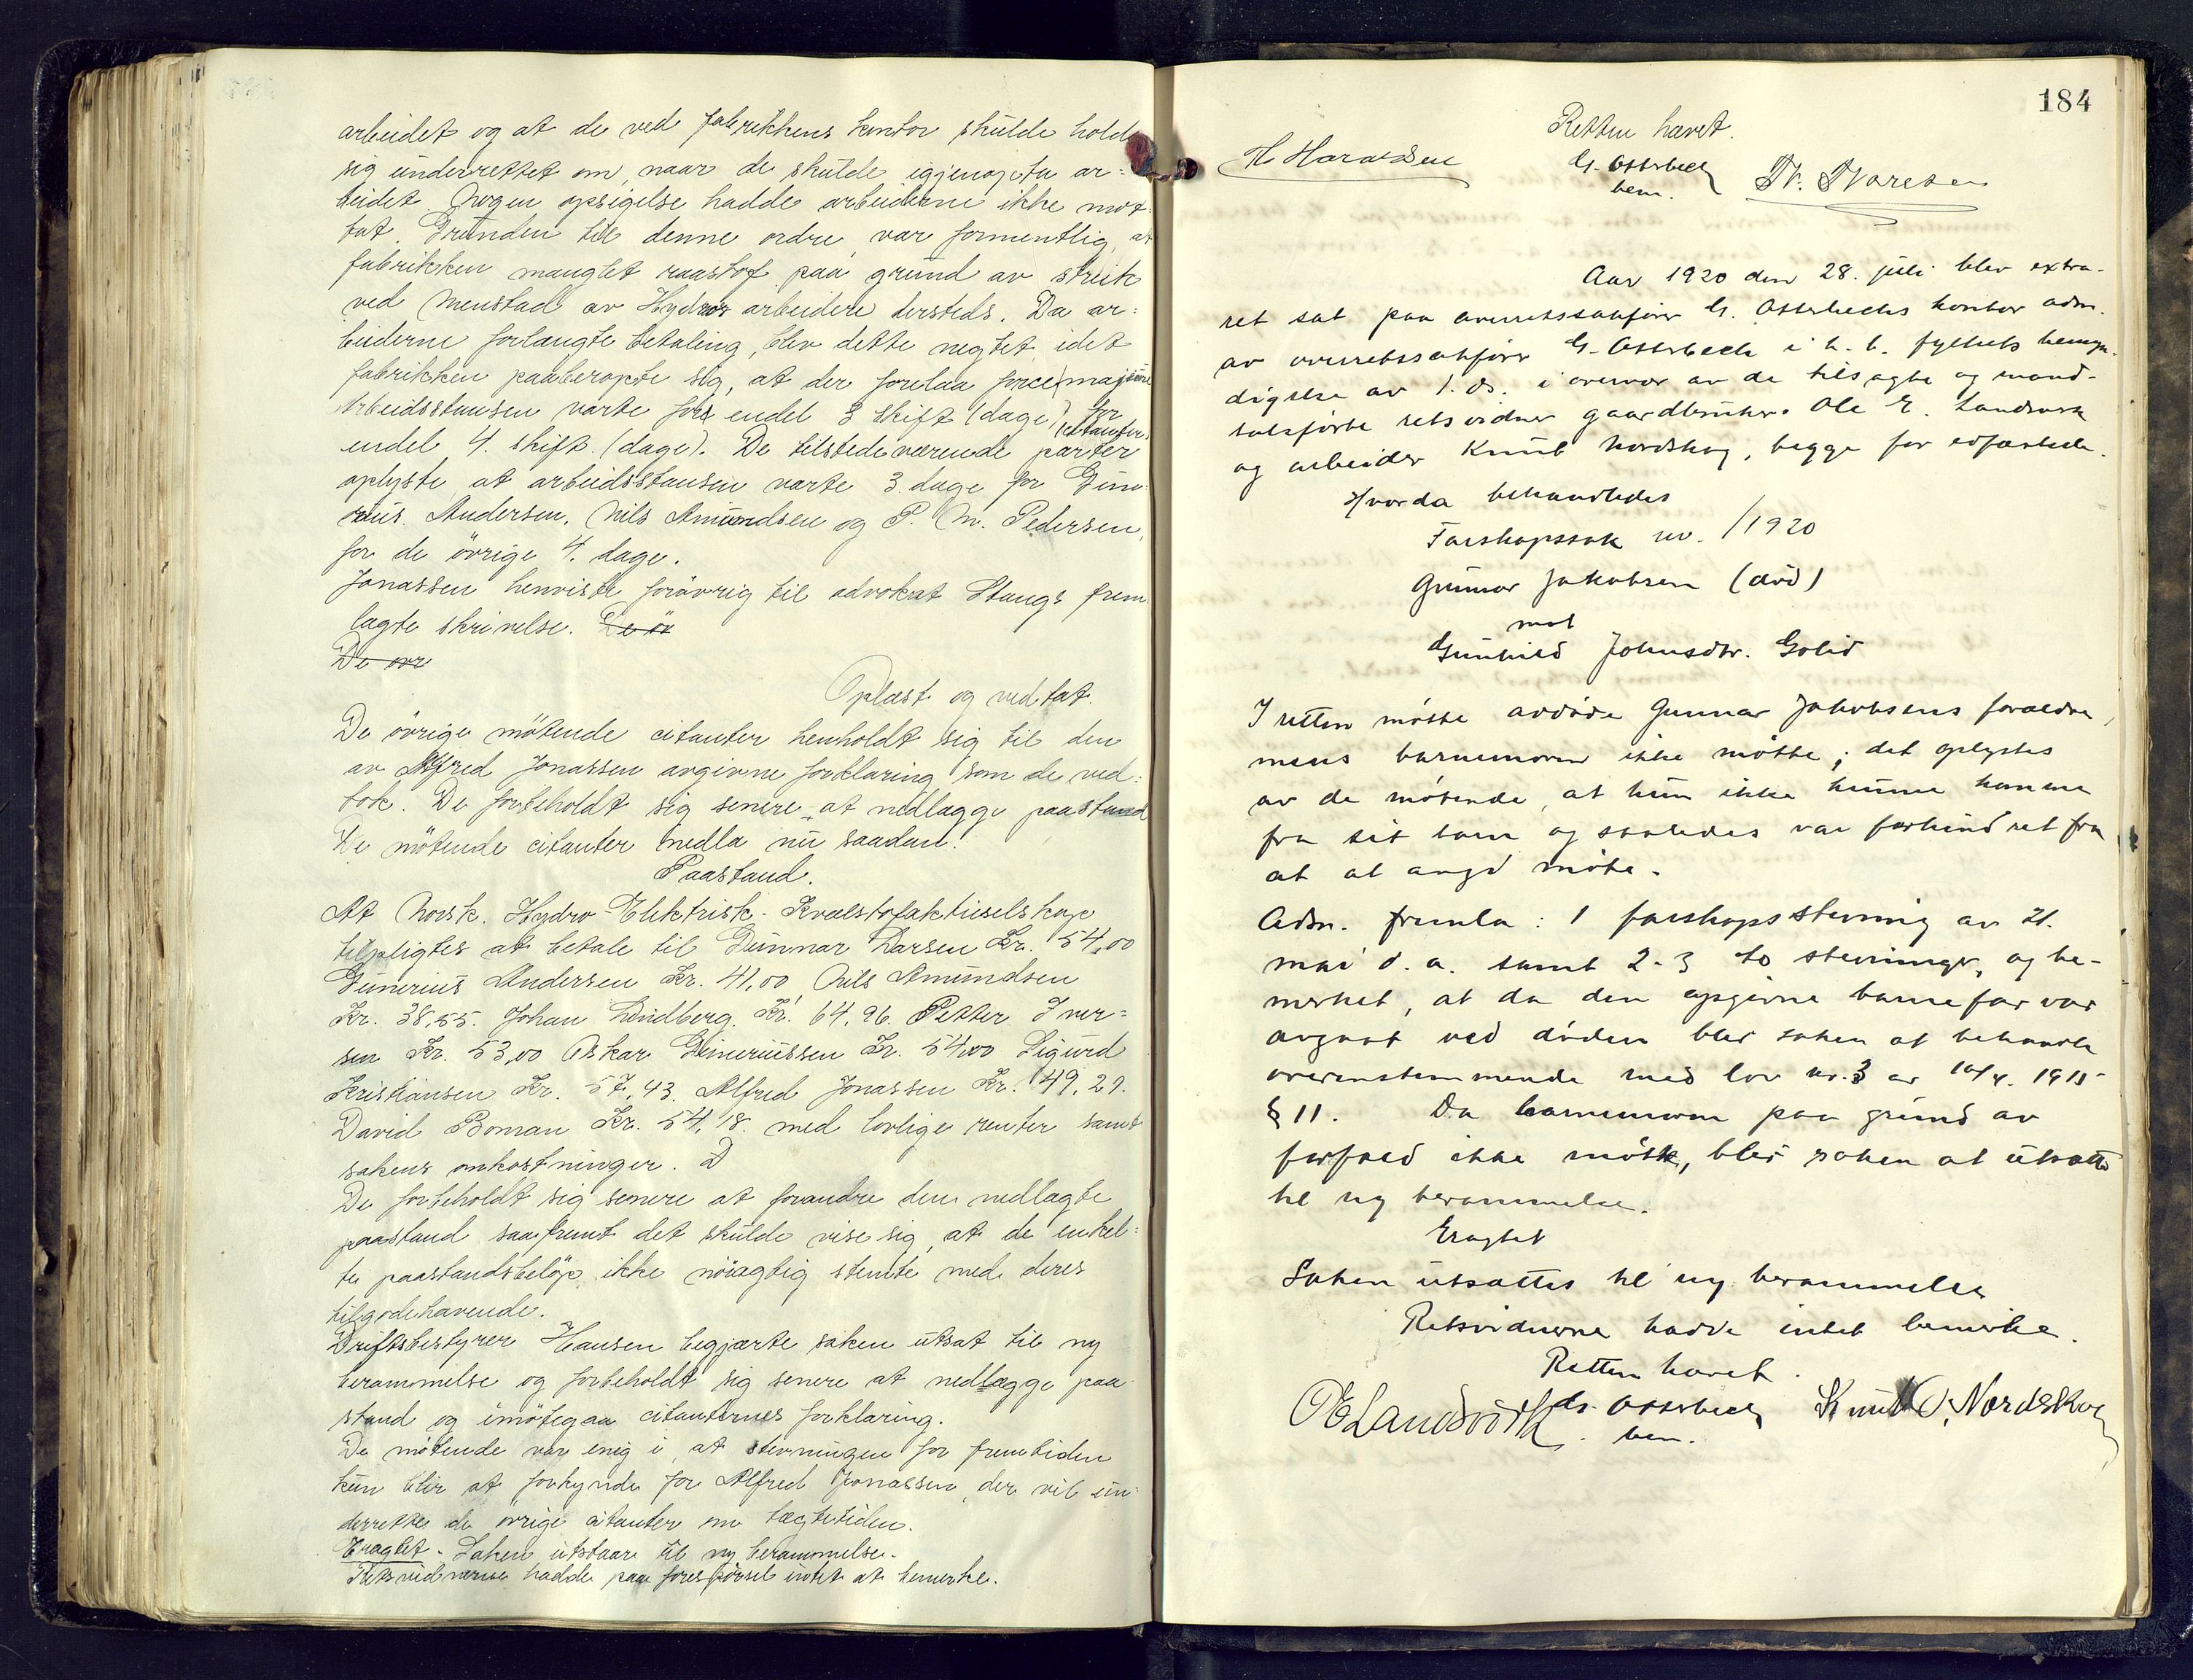 arbeidet og at de ved fabrikkens kontor skulde holde
sig underrettet om, naar de skulde igjenopta ar=
beidet. Nogen opsigelse hadde arbeiderne ikke mot=
tat. Grunden til denne ordre var formentlig, at
fabrikken manglet raastof paa grund av streik
ved Menstad av Hydros arbeidere dersteds. Da ar=
beiderne forlangte betaling, blev dette negtet, idet
fabrikken paaberopte sig, at der forelaa force majeure
Arbeidsstansen varte for endel 3 skift (dage) for
endel 4. skift (dage). De tilstedeværende parter
citanter
oplyste, at arbeidsstansen varte 3 dage for Gune
rius Andersen, Nils Amundsen og P. M. Pedersen,
for de övrige 4. dage.
Jonassen henviste forövrig til advokat Stangs frem
lagte skrivelse. De öv
De øvr
Oplæst og vedtat.
De övrige mötende citanter henholdt sig til den
av Alfred Jonassen avgivne forklaring som de ved=
tok. De forbeholdt sig senere at nedlægge paastand
De mötende citanter nedla nu saadan.
Paastand.
At Norsk Hydro-Elektrisk-Kvælstofaktieselskap
tilpligtes at betale til Gunnar Larsen Kr. 54,00
Gunerius Andersen Kr. 41,00 Nils Amundsen
Kr. 38,55. Johan Lindberg Kr. 64,96. Petter Iver=
sen Kr. 53,00 Oskar Guneriussen Kr. 54,00 Sigurd
Kristiansen Kr. 57,43. Alfred Jonassen Kr. 49,29.
David Boman Kr. 54,18. med lovlige renter samt
sakens omkostninger.
De forbeholdt sig senere at forandre den nedlagte
paastand saafremt det skulde vise sig, at de enkel=
te paastandsbelöp ikke nöiagtig stemte med deres
tilgodehavende.
Driftsbestyrer Hansen begjærte saken utsat til ny
berammelse og forbeholdt sig senere at nedlægge paa
stand og imötegaa citanternes forklaring.
De mötende var enig i, at stevningen for fremtiden
kun blir at forkynde for Alfred Jonassen, der vil un=
derrette de övrige citanter om tægtetiden.
Eragtet - Saken utstaar til ny berammelse.
Retsvidnerne hadde paa forespörsel intet at bemerke.
184
Retten hævet.
G. Otterbech
bem.
Aar 1920 den 28. juli blev extra-
ret sat paa overretssakfører G. Otterbechs kontor adm.
av overretssakfører G. Otterbech i h. t. fylkets bemyn-
digelse av 1. ds. i overvær av de tilsagte og mand-
talsførte retsvidner gaardbruker Ole E. Landsverk
og arbeider Knut Nordskog, begge før edfæstede.
Hvorda behandledes
Farskapssak nr. /1920
Gunnar Jakobsen (død)
mot
Gunhild Johnsdtr. Golid
I retten møtte avdøde Gunnar Jakobsens forældre,
mens barnemoren ikke møtte; det oplystes
av de møtende, at hun ikke kunne komme
fra sit barn og saaledes var forhindret fra
at at angd møte.
Adm. fremla: 1 farskapsstevning av 21.
mai d. a. samt 2-3 to stevninger, og be-
merket, at da den opgivne barnefar var
avgaat ved døden blev saken at behandle
overensstemmende med lov nr. 3 av 10/4. 1915
§ 11. Da barnemoren paa grund av
forfald ikke møtte, blev saken at utsætte
til ny berammelse.
Eragtet
Saken utsættes til ny berammelse
Retsvidnerne hadde intet bemerke.
Retten hævet.
OELandsverk G. Otterbech Knut O. Nordskog
bem.